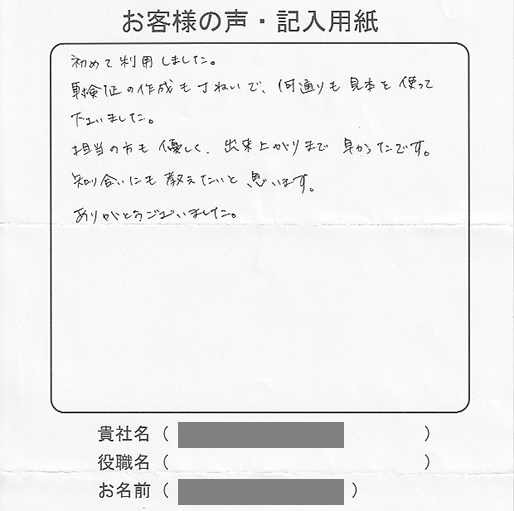 お客様の声・記入用紙
初めて利用しました。
の作成もていねいで、何通りも見本を使って
下さいました。
担当の方も優しく、出来上がりまで早かったです。
知り合いにも教えたいと思います。
ありがとうございました。
貴社名（　）
役職名（　）
お名前（　）